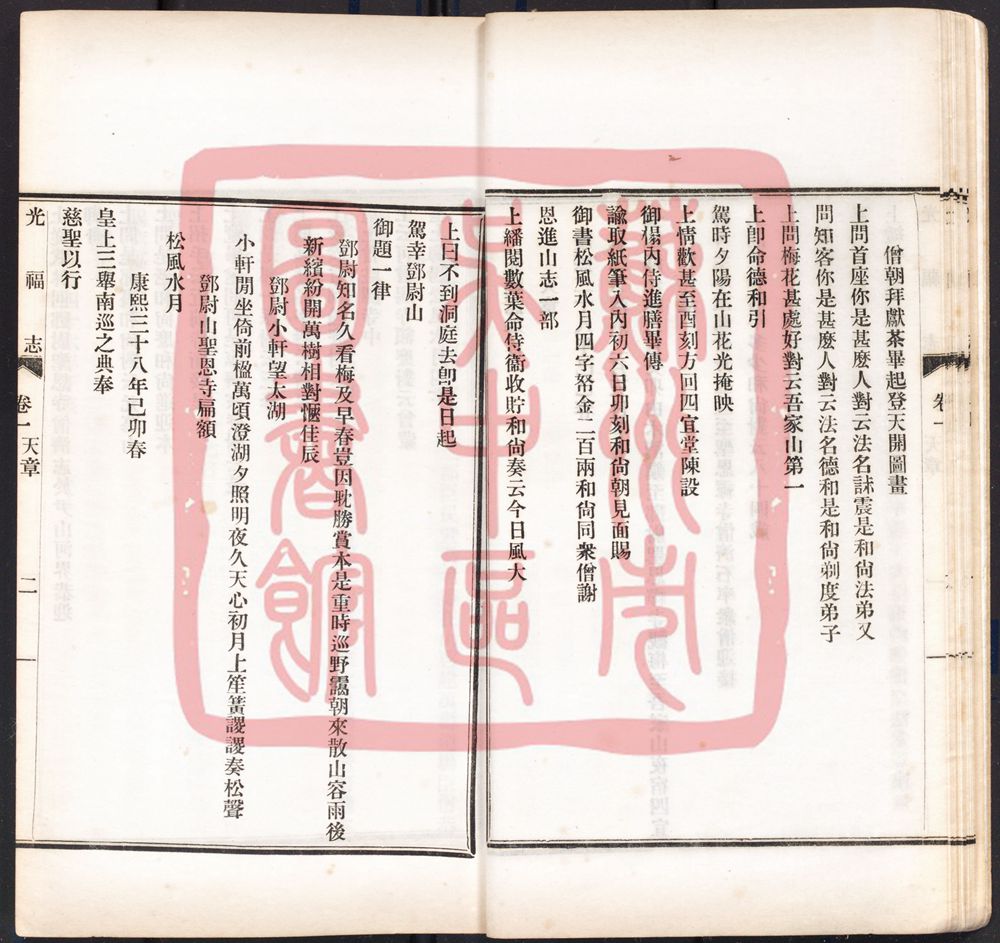 僧朝拜獻茶畢起登天開圖畫
上問首座你是甚麽人對云法名誄震是和尙法弟又
問知客你是甚麽人對云法名德和是和尙剃度弟子
上問梅花甚處好對云吾家山第一
上卽命德和引
駕時夕陽在山花光掩映
上情歡甚至酉刻方回四宜堂陳設
御榻內侍進膳畢傳
諭取紙筆入內初六日卯刻和尙朝見面賜
御書松風水月四字帑金二百兩和尙同衆僧謝
恩進山志一部
上繙閱數葉命侍衞收貯和尙奏云今日風大
上曰不到洞庭去卽是日起
駕幸鄧尉山
御題一律
鄧尉知名久看梅及早春豈因耽勝賞本是重時巡野靄朝來散山容雨後
新繽紛開萬樹相對愜佳辰
鄧尉小軒望太湖
小軒閒坐倚前楹萬頃澄湖夕照明夜久天心初月上笙簧謖謖奏松聲
鄧尉山聖恩寺扁額
松風水月
康熙三十八年己卯春
皇上三舉南巡之典奉
慈聖以行
光福志 卷一 天章 二
蘇州市吳中區圖書館
卷一